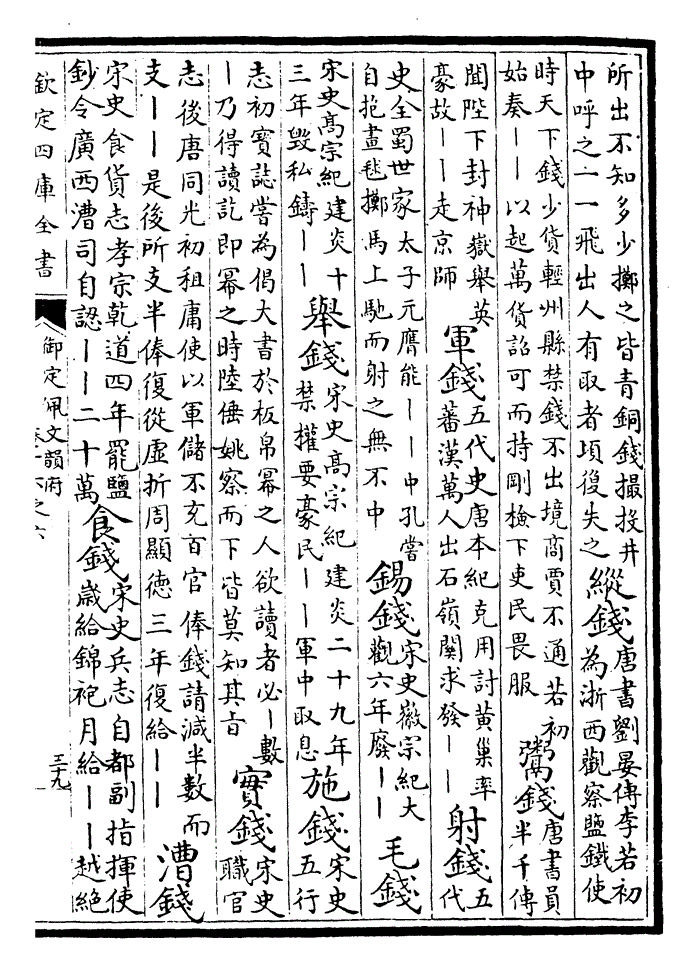 所出不知多少擲之皆青銅錢撮投井
中呼之一一飛出人有取者頃復失之
縱錢
唐書劉晏傳李若初
為浙西觀察鹽鐵使
時天下錢少貨輕州縣禁錢不出境商賈不通若初
始奏――以起萬貨詔可而持剛檢下吏民畏服
鬻錢
唐書員
半千傳
聞陛下封神嶽舉英
豪故――走京師
軍錢
五代史唐本紀克用討黃巢率
蕃漢萬人出石嶺關求發――
射錢
五
代
史全蜀世家太子元膺能――中孔嘗
自抱畫毬擲馬上馳而射之無不中
錫錢
宋史徽宗紀大
觀六年廢――
毛錢
宋史髙宗紀建炎十
三年毀私鑄――
舉錢
宋史髙宗紀建炎二十九年
禁權要豪民――軍中取息
施錢
宋史
五行
志初寳誌嘗為偈大書於板帛冪之人欲讀者必―數
―乃得讀訖即冪之時陸倕姚察而下皆莫知其㫖
實錢
宋史
職官
志後唐同光初租庸使以軍儲不充百官俸錢請減半數而
支――是後所支半俸復從虛折周顯德三年復給――
漕錢
宋史食貨志孝宗乾道四年罷鹽
鈔令廣西漕司自認――二十萬
食錢
宋史兵志自都副指揮使
歲給錦袍月給――越絶
欽定四庫全書
御定佩文韻府
之六
三十九